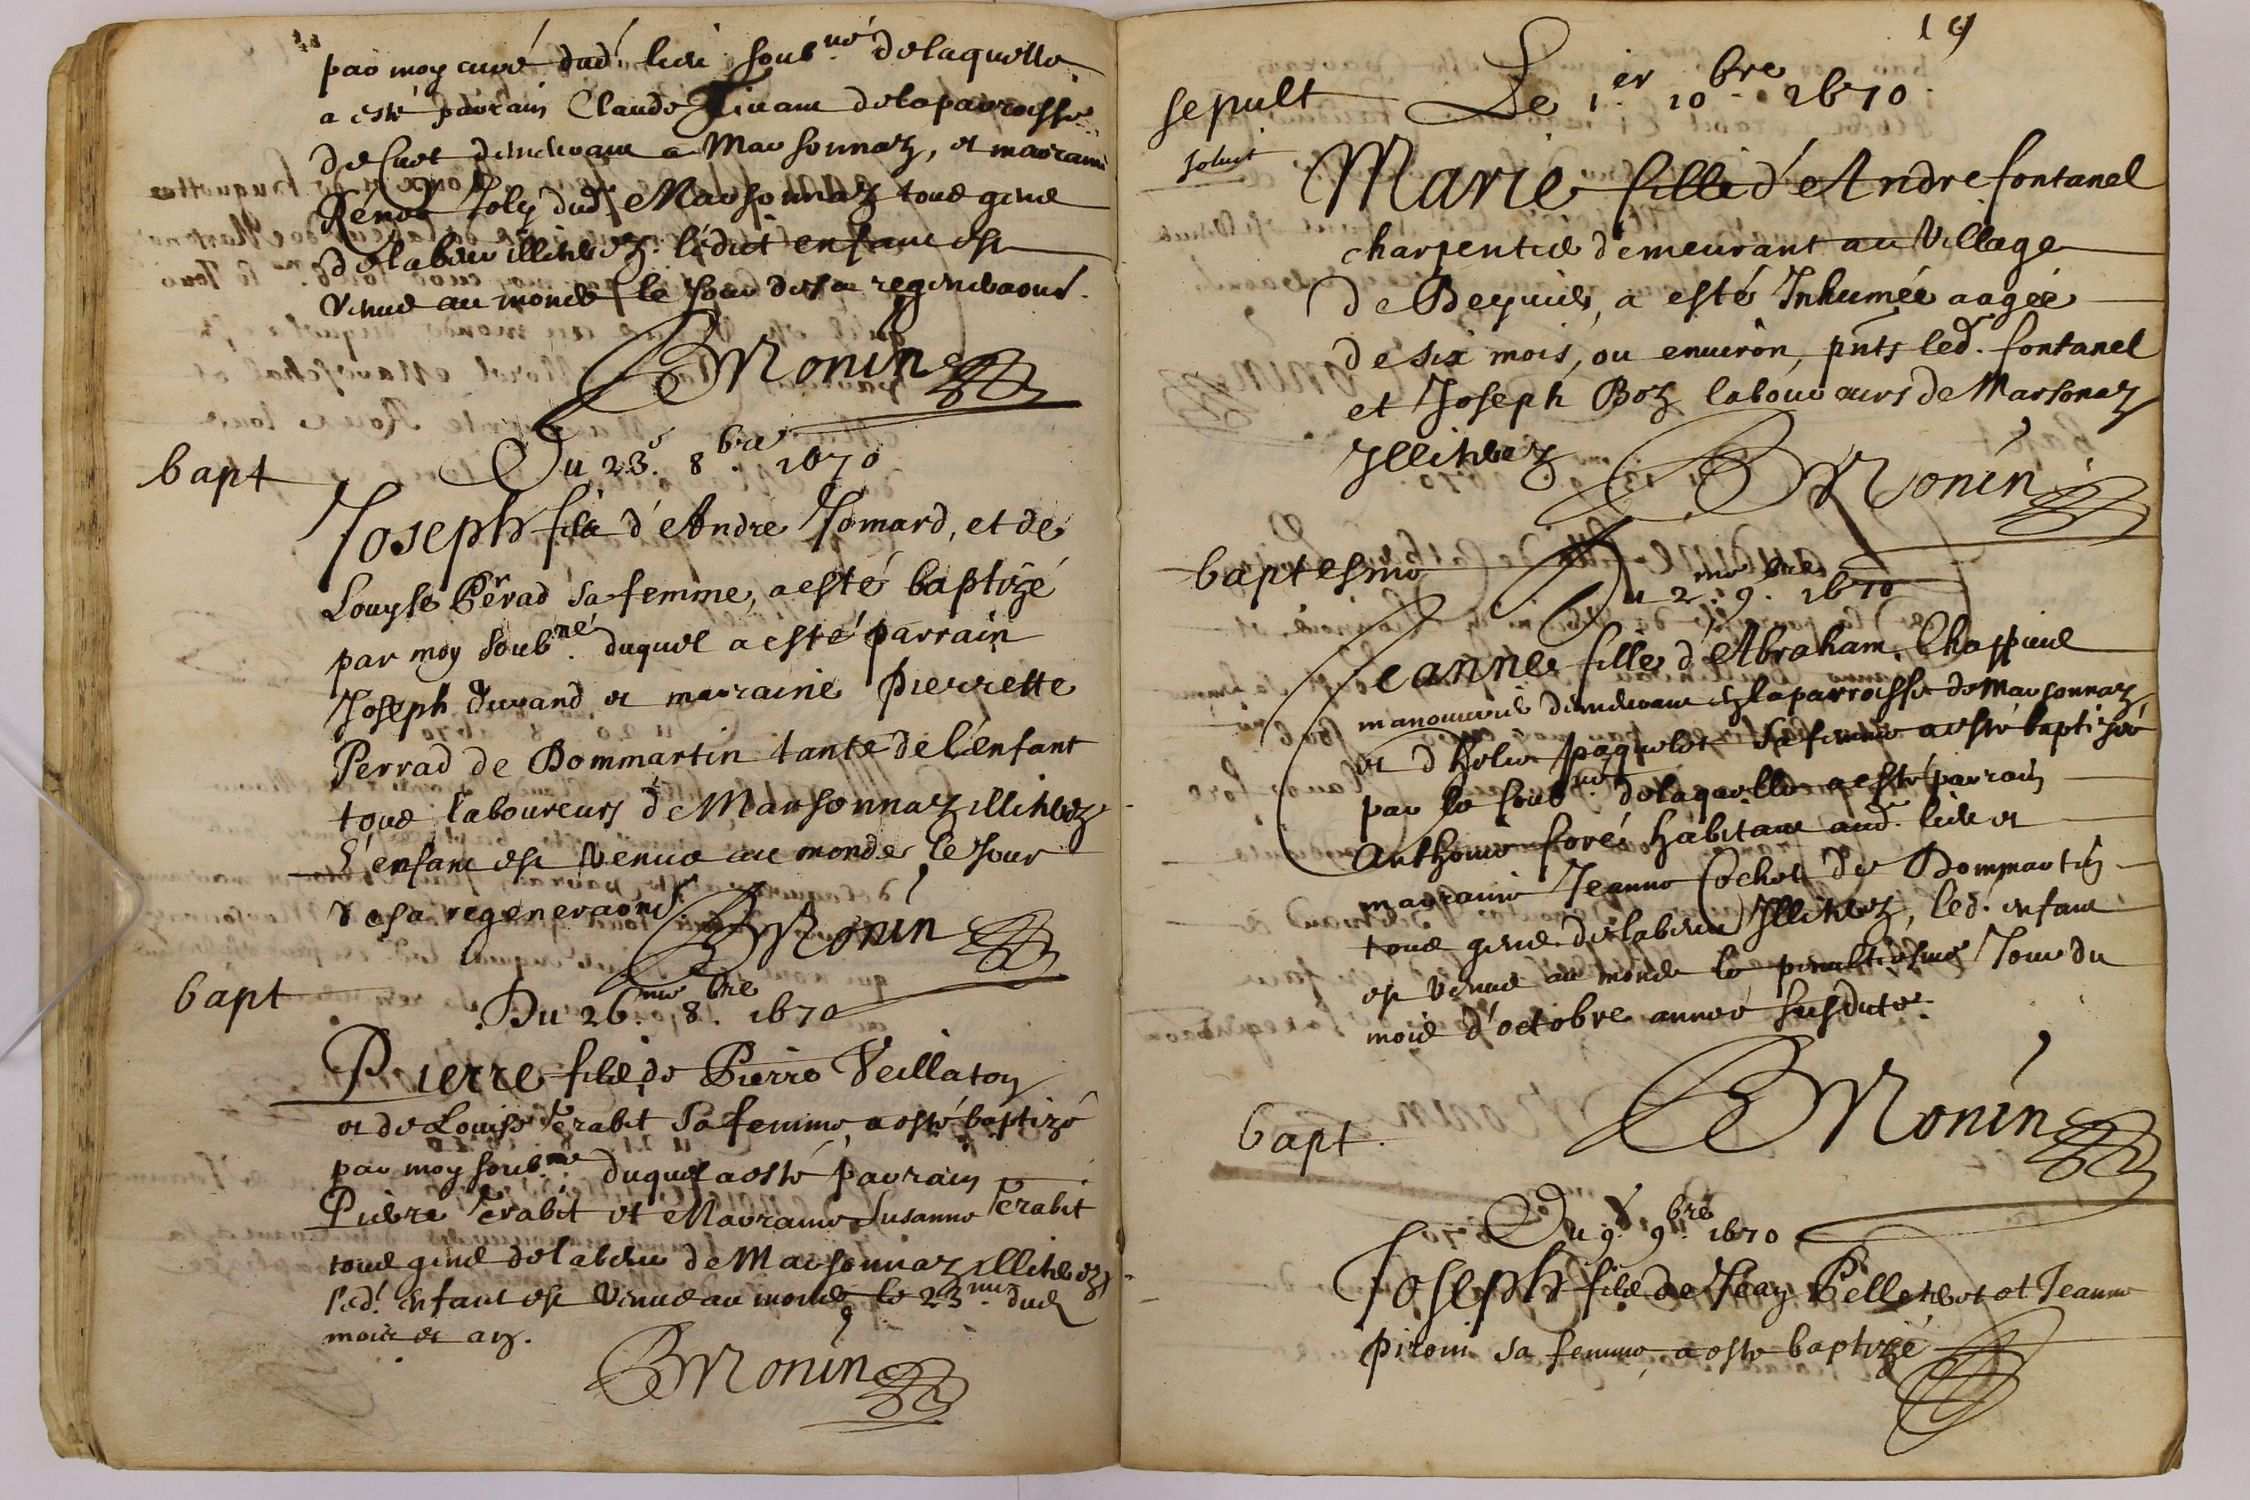 par moy curé dud. lieu soub.né delaquelle
a esté parrain Claude Tivant delaparroisse
de Cuet demeurant a Marsonnaz, et marraine
Joly dud. Marsonnaz tous gens
de labeur illiterez. lédict enfant est
venue au monde le jour de sa regeneraõn.
BMonin
bapt
Du 23.e 8.bre 1670
Joseph fils d'Andre Jomard, et de
Louyse Perrad sa femme, a esté baptizé
par moy soub.né duquel a esté parrain
Joseph durand et marraine Pierrette
Perrad de Dommartin tante de l'enfant
tous laboureurs de Marsonnaz illiterez
L'enfant est venue au monde le jour
de sa regeneraõn.
BMonin
bapt
Du 26.me 8.bre 1670
Pierre fils de Pierre Veillaton
et de Louise Ferabit sa femme, a esté baptizé
par moy soub.né duquel a esté parrain
Pierre Ferabit et Marraine Susanne Ferabit
tous gens de labeur de Marsonnaz illiterez
led. enfant est venue au monde le 23.me dud
mois et an.
BMonin
19
sepult
Le 1.er 10.bre 1670
soluit
Marie fille d'Andre fontanel
charpentier demeurant au Village
de Beyviers, a esté Inhumée aagée
de six mois, ou environ, pñts led. fontanel
et Joseph Boz laboureurs de Marsonaz
Illiterez
BMonin
baptesme
Du 2.me 9.bre 1670
Jeanne fille d'Abraham Chappuis
manouvrier demeurant ez la parroisse de Marsonnaz
et d'Helie paquelet sa femme a esté baptisée
par le soub.né delaquelle a esté parrain
Anthoine foré habitant aud. lieu et
marraine Jeanne Cochet de Dommartin
tous gens de labeur Illiterez, led. enfant
est venue au monde le penultiesme Jour du
mois d'octobre année susdicte.
BMonin
bapt
Du 9.e 9.bre 1670
Joseph fils de Jean Pelleteret et Jeanne
piroin sa femme, a esté baptizé